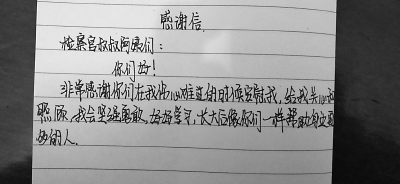 感谢信
检察官叔叔阿姨们：
你们好！
非常感谢你们在我伤心难过的时候安慰我，给我关心和
照顾，我会坚强勇敢，好好学习，长大后像你们一样帮助有困
的人。